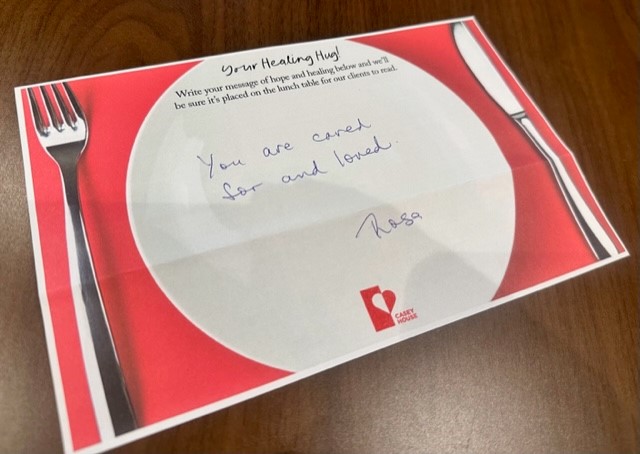 Your Healing Hug!
Write your message of hope and healing below and we'll
be sure it's placed on the lunch table for our clients to read.
You are cared
for and loved.
Rosa
CASEY
HOUSE